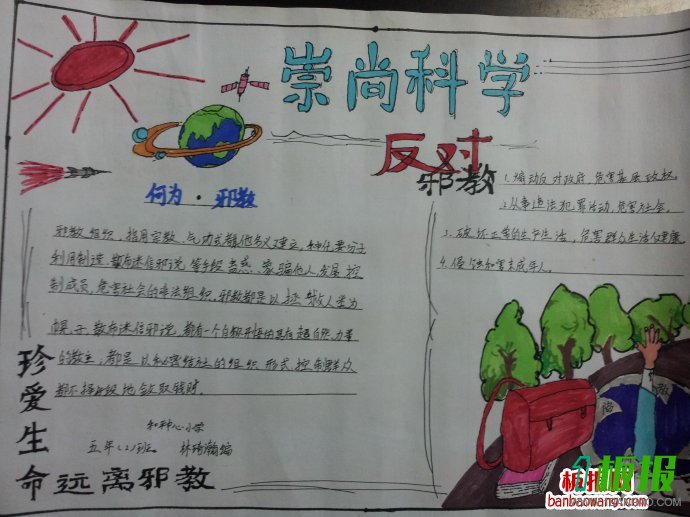 崇尚科学
反对
邪教
何为·邪教
邪教组织，指冒用宗教、气功或其他名义建立，神化首要分子
利用制造、散布迷信邪说等手段蛊惑、蒙骗他人，发展、控
制成员，危害社会的非法组织。邪教都是以拯救人类为
幌子，散布迷信邪说，都有一个自称开悟的具有超自然力量
的教主，都是以秘密结社的组织形式控制群众
都不择手段地敛取钱财。
中心小学
五年(2)班 林琦瀚编
1.煽动反对政府，危害基层政权。
2.从事违法犯罪活动，危害社会。
3.破坏正常的生产生活，危害群众生活健康
4.侵蚀和害未成年人。
珍爱生命远离邪教
教
板报
banbaowang.com